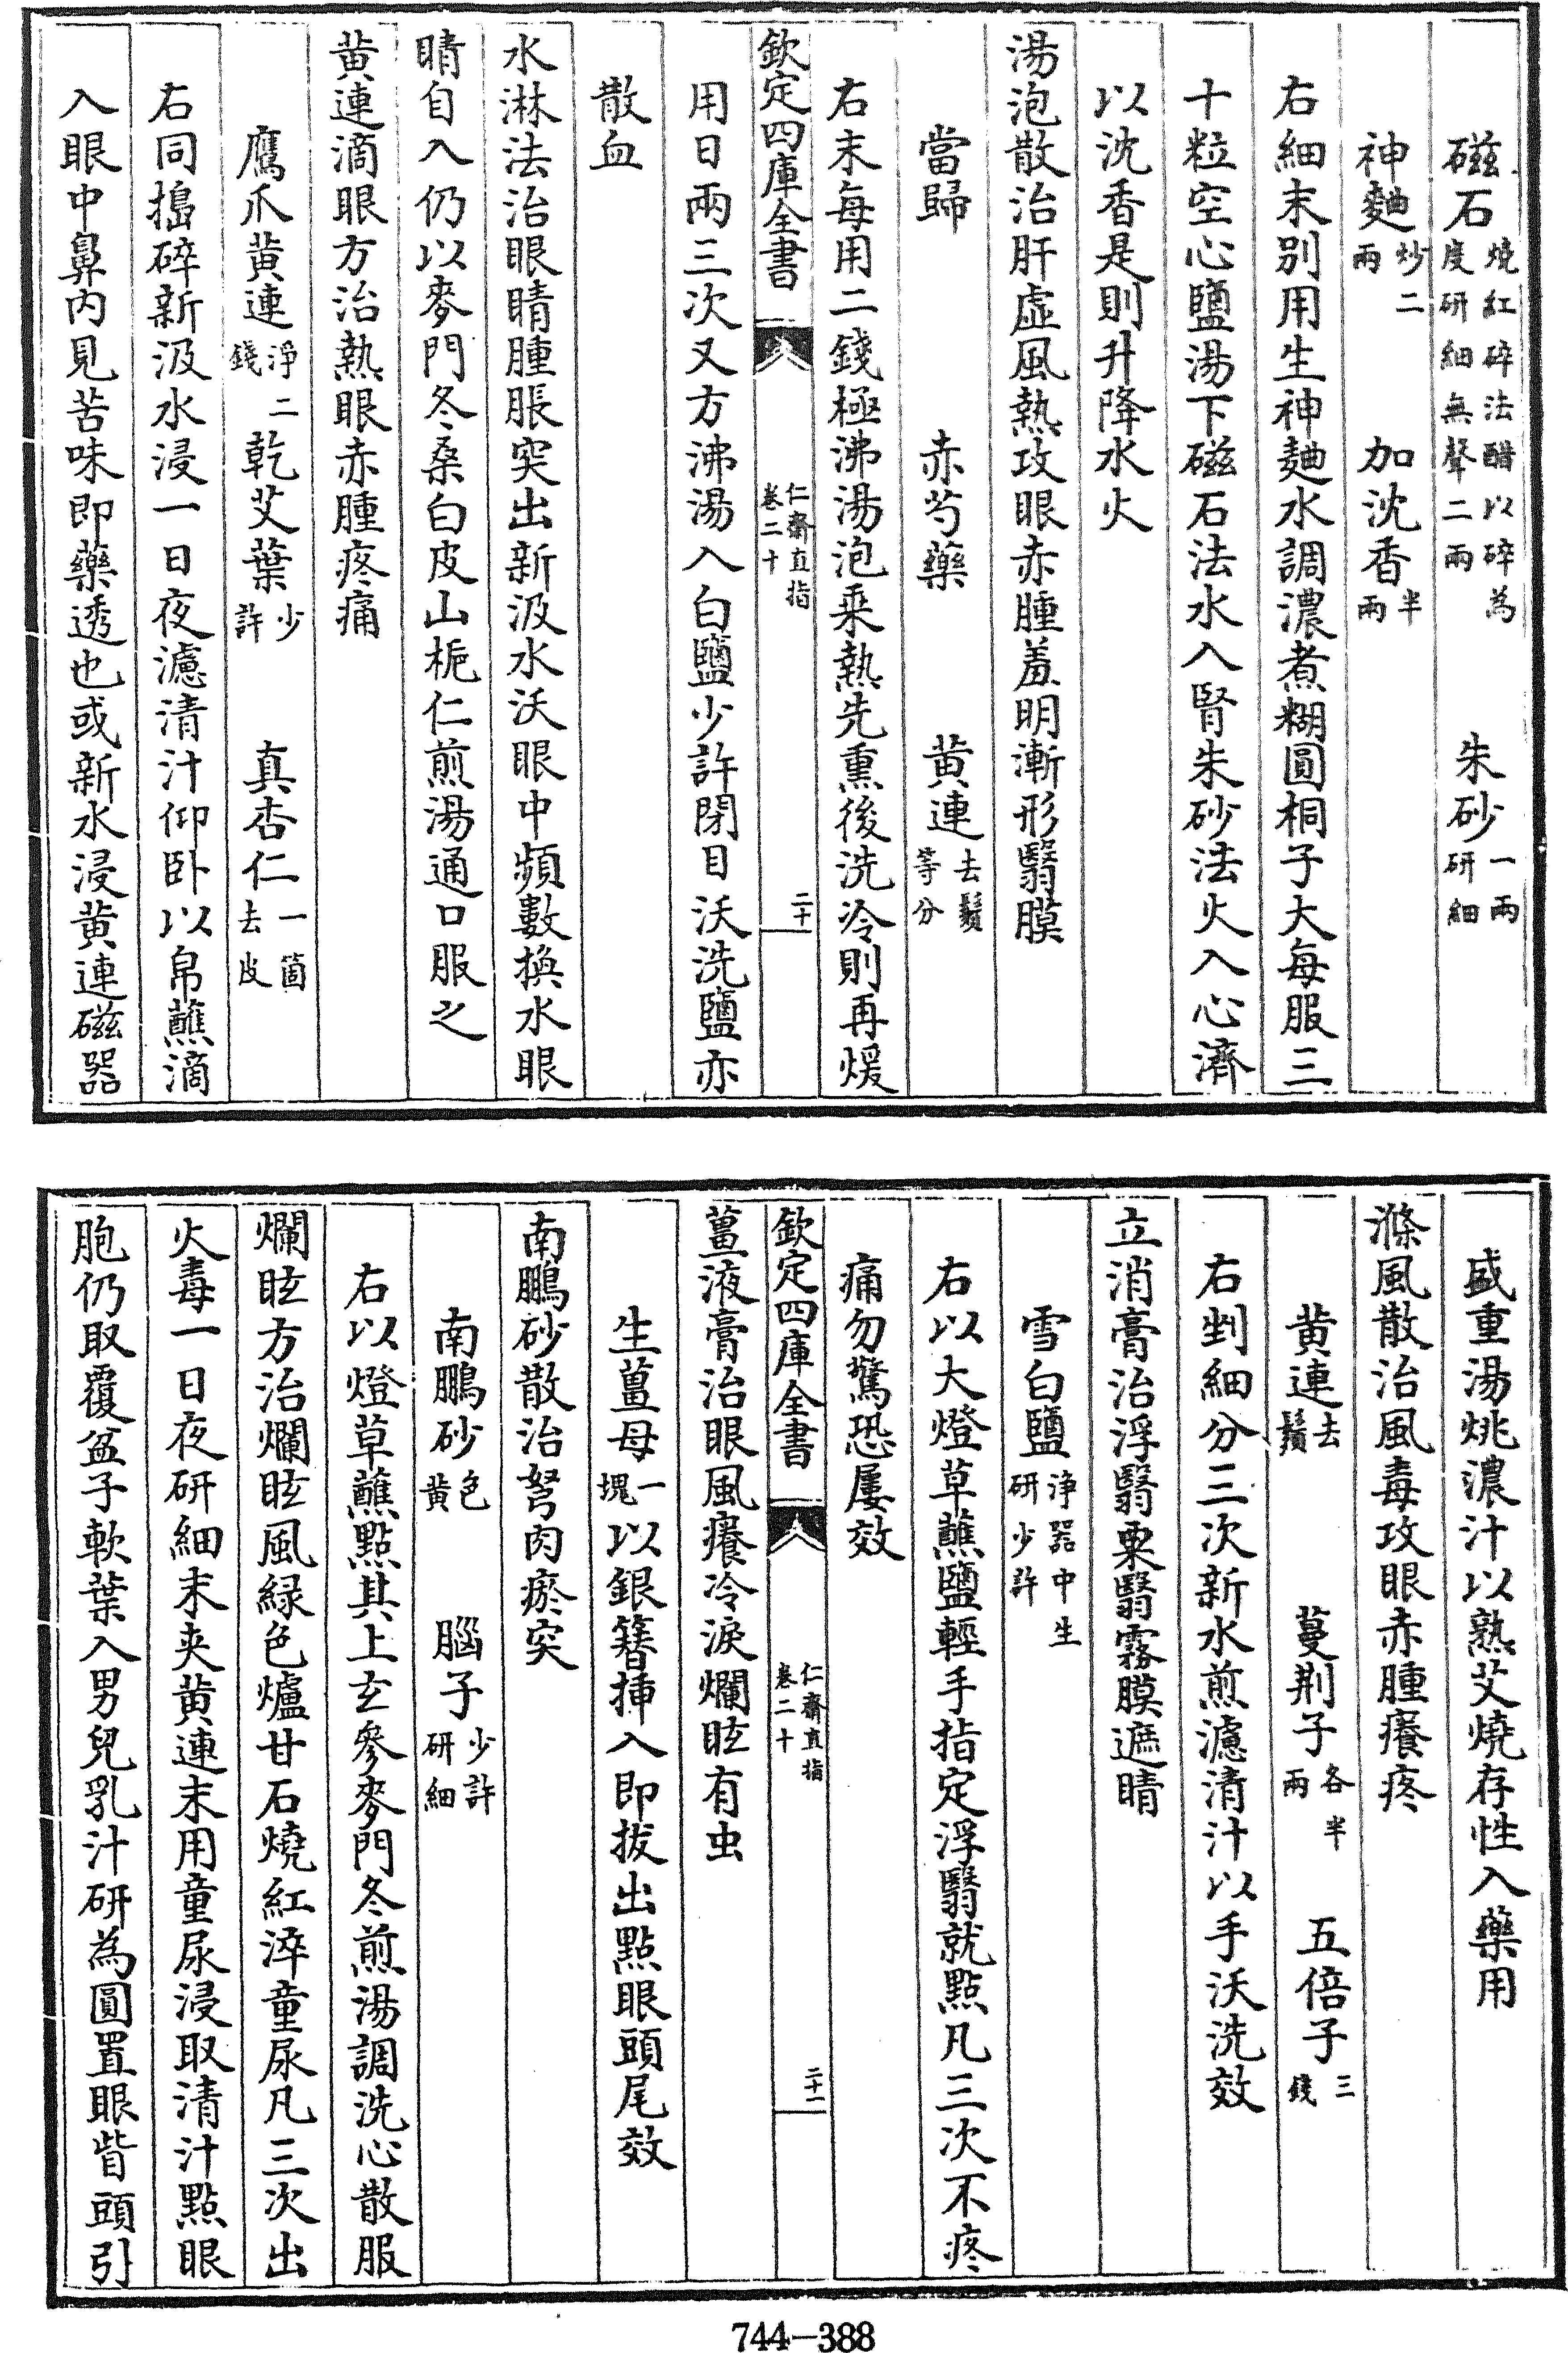 磁石燒紅碎法醋以碎為度研細無聲二兩　朱砂一兩研細
神麯炒二兩　加沈香半兩
右細末別用生神麯水調濃煮糊圓桐子大每服三
十粒空心鹽湯下磁石法水入腎朱砂法火入心濟
以沈香是則升降水火
湯泡散治肝虛風熱攻眼赤腫羞明漸形翳膜
當歸　赤芍藥　黄連去鬚等分
右末每用二錢極沸湯泡乗熱先熏後洗冷則再煖
欽定四庫全書　仁齋直指卷二十　二十
用日兩三次又方沸湯入白鹽少許閉目沃洗鹽亦
散血
水淋法治眼睛腫脹突出新汲水沃眼中頻數換水眼
睛自入仍以麥門冬桑白皮山梔仁煎湯通口服之
黄連滴眼方治熱眼赤腫疼痛
鷹爪黄連淨二錢　乾艾葉少許　真杏仁一箇去皮
右同搗碎新汲水浸一日夜濾清汁仰卧以帛蘸滴
入眼中鼻内見苦味即藥透也或新水浸黄連磁器
盛重湯烑濃汁以熟艾燒存性入藥用
滌風散治風毒攻眼赤腫癢疼
黄連去鬚　蔓荆子各半兩　五倍子三錢
右剉細分三次新水煎濾清汁以手沃洗效
立消膏治浮翳粟翳霧膜遮睛
雪白鹽浄器中生研少許
右以大燈草蘸鹽輕手指定浮翳就點凡三次不疼
痛勿驚恐屢效
欽定四庫全書　仁齋直指卷二十　二十一
薑液膏治眼風癢冷淚爛眩有虫
生薑母一塊以銀簪挿入即拔出點眼頭尾效
南鵬砂散治弩肉瘀突
南鵬砂色黄　腦子少許研細
右以燈草蘸點其上玄參麥門冬煎湯調洗心散服
爛眩方治爛眩風緑色爐甘石燒紅淬童尿凡三次出
火毒一日夜研細末夾黄連末用童尿浸取清汁點眼
胞仍取覆盆子軟葉入男兒乳汁研為圓置眼眥頭引
744-388